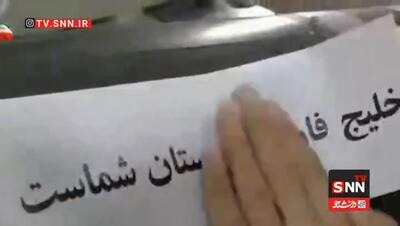 TV.SNN.IR
خلیج فا
ستان شماست
SNN TV
دانشجو